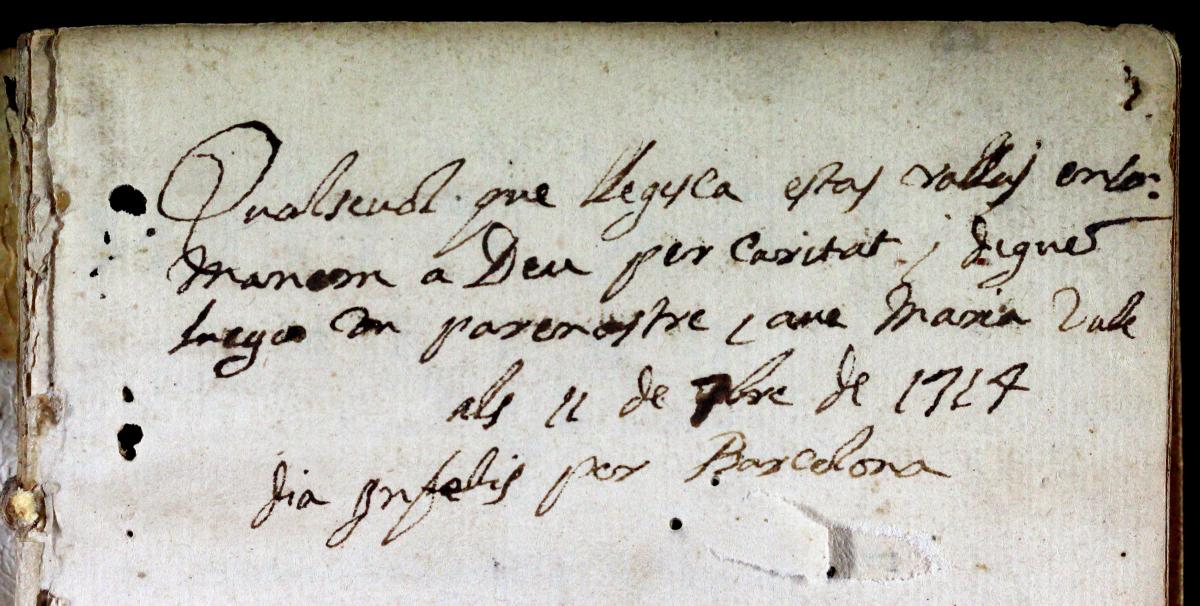 Qualsevol que llegisca estas rallas enco:
manem a Deu per caritat, y digue
luego un parenostre, y ave Maria Vale
als 11 de 7bre de 1714
dia infelis per Barcelona